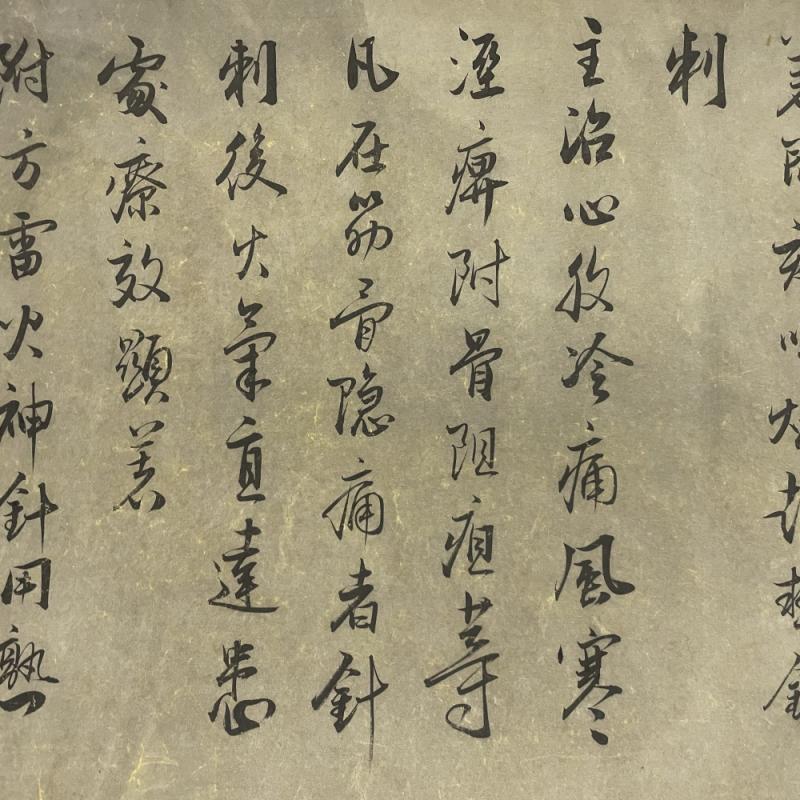 刺
主治心腹冷痛風寒
溼痺附骨阻疽等
凡在筋骨隐痛者針
刺後火氣直達患
處療效顯著
附方雷火神針用熟